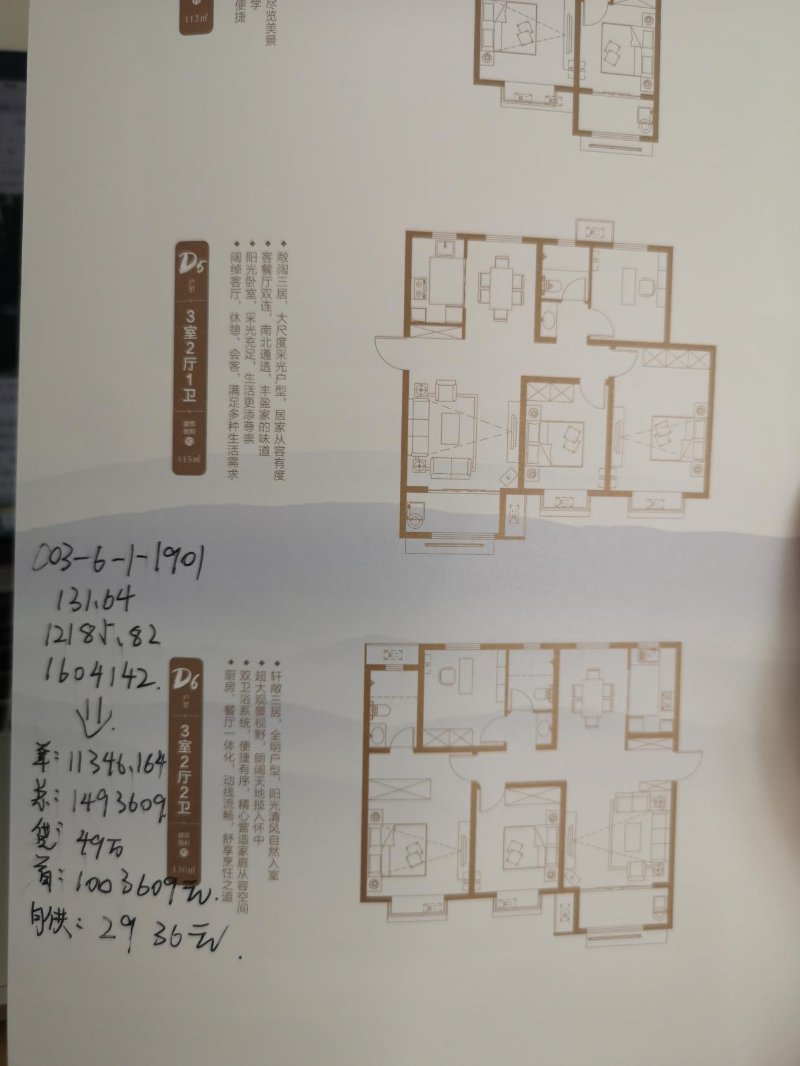 112㎡
尽览美景
D5
户型
3室2厅1卫
建筑面积
约
115㎡
敞阔三居，大尺度采光户型，居家从容有度
客餐厅双连，南北通透，丰盈家的味道
阳光卧室，采光充足，生活更添尊崇
阔绰客厅，休憩、会客，满足多种生活需求
003-6-1-1901
131.64
12185.82
1604142.
D6
户型
3室2厅2卫
建筑面积
约
130㎡
轩敞三居，全明户型，阳光清风自然入室
超大观景视野，朗阔天地揽入怀中
双卫浴系统，便捷有序，精心营造家庭从容空间
厨房、餐厅一体化，动线流畅，舒享烹饪之道
单：11346.164
总：1493609
贷：49万
首：1003609元.
月供：2936元.